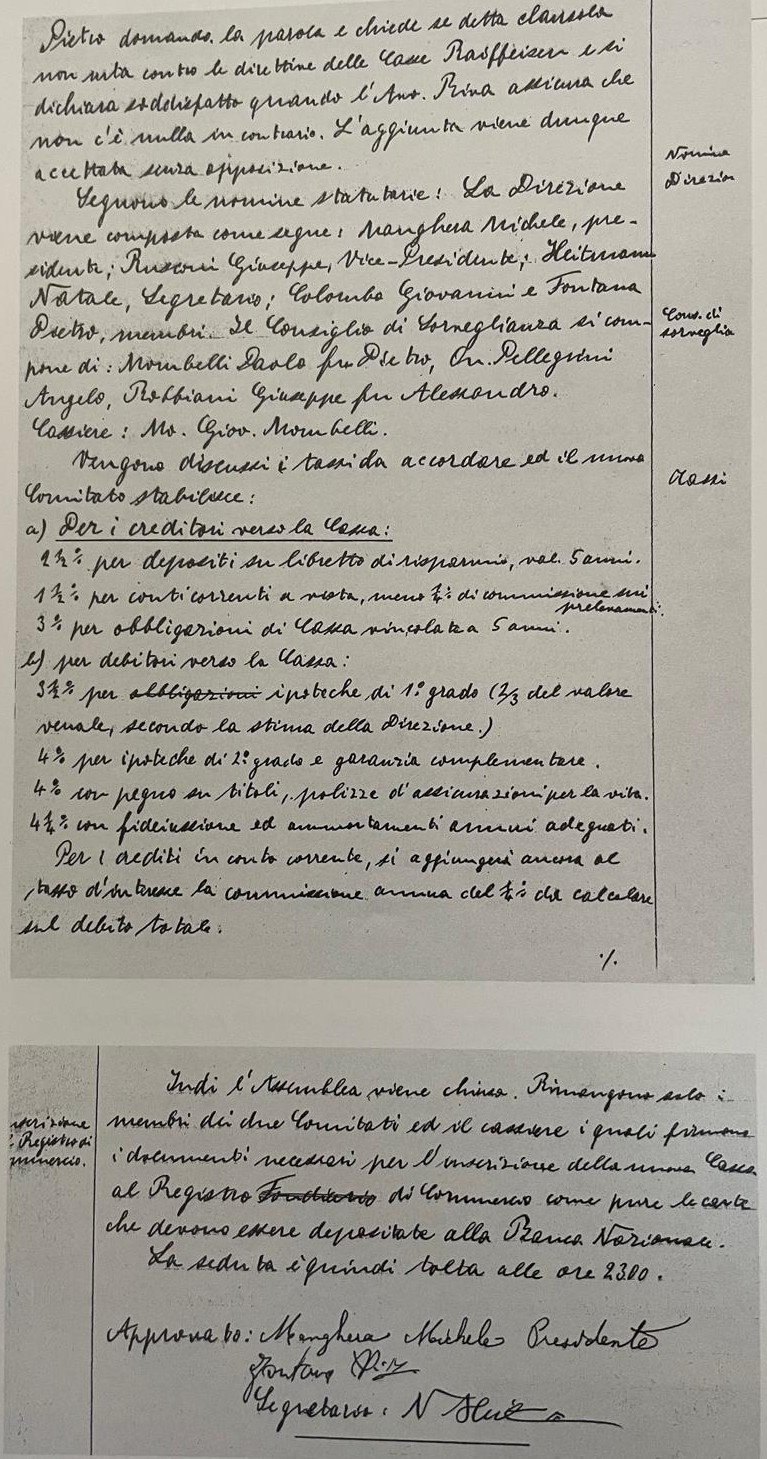 Pietro domanda la parola e chiede se detta clausola
non urta contro le direttive delle Casse Raiffeisen e si
dichiara soddisfatto quando l'Avv. Riva assicura che
non c'è nulla in contrario. L'aggiunta viene dunque
accettata senza opposizione.
Nomina
Direzion
Seguono le nomine statutarie: La Direzione
viene composta come segue: Manghera Michele, pre-
sidente; Rusconi Giuseppe, Vice-Presidente; Heitmann
Natale, Segretario; Colombo Giovanni e Fontana
Pietro, membri. Il Consiglio di Sorveglianza si com-
Cons. di
sorveglia
pone di: Mombelli Paolo fu Pietro, On. Pellegrini
Angelo, Robbiani Giuseppe fu Alessandro.
Cassiere: Mo. Giov. Mombelli.
Vengono discussi i tassi da accordare ed il nuovo
Tassi
Comitato stabilisce:
a) Per i creditori verso la Cassa:
2½% per depositi su libretto di risparmio, val. 5 anni.
1½% per conti correnti a vista, meno ¼% di commissione sui
prelevamenti.
3% per obbligazioni di Cassa vincolate a 5 anni.
b) per debitori verso la Cassa:
3½% per obbligazioni ipoteche di 1° grado (2/3 del valore
venale, secondo la stima della Direzione.)
4% per ipoteche di 2° grado e garanzia complementare.
4% con pegno su titoli, polizze d'assicurazioni per la vita.
4¼% con fideiussione ed ammortamenti annui adeguati.
Per i crediti in conto corrente, si aggiungerà ancora al
tasso d'interesse la commissione annua del ¼% da calcolare
sul debito totale.
./.
Indi l'Assemblea viene chiusa. Rimangono solo i
membri dei due Comitati ed il cassiere i quali firmano
i documenti necessari per l'inscrizione della nuova Cassa
nscrizione
Registro di
mmercio.
al Registro Fondiario di Commercio come pure le carte
che devono essere depositate alla Banca Nazionale.
La seduta è quindi tolta alle ore 2300.
Approvato: Manghera Michele Presidente
Fontana
Segretario: N